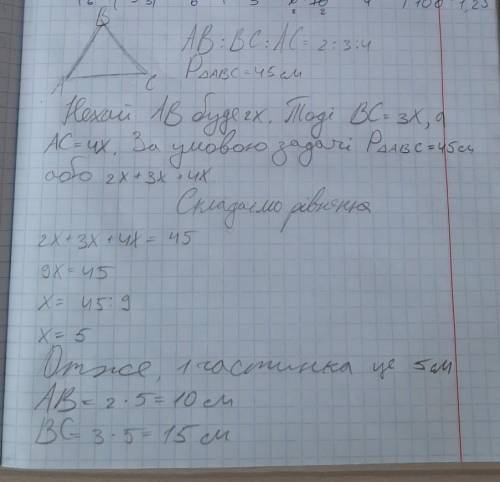 B
A C
AB : BC : AC = 2 : 3 : 4
P△ABC = 45 см
Нехай AB буде 2x. Тоді BC = 3x, а
AC = 4x. За умовою задачі P△ABC = 45 см
або 2x + 3x + 4x
Складаємо рівняння
2x + 3x + 4x = 45
9x = 45
x = 45 : 9
x = 5
Отже, 1 частинка це 5 см
AB = 2 · 5 = 10 см
BC = 3 · 5 = 15 см